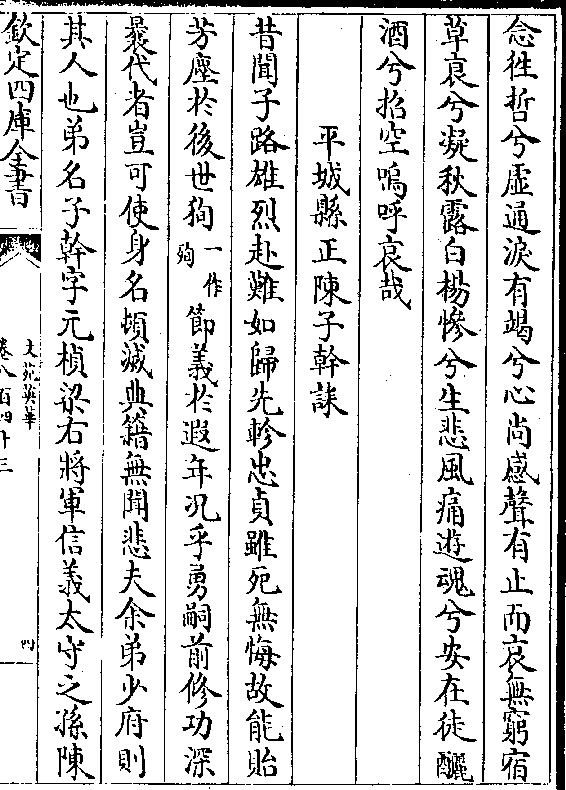 念徃哲兮虚通淚有竭兮心尚感聲有止而哀無窮宿
草哀兮凝秋露白楊慘兮生悲風痛遊魂兮安在徒釃
酒兮招空嗚呼哀哉
平城縣正陳子幹誄
昔聞子路雄烈赴難如歸先軫忠貞雖死無悔故能貽
芳塵於後世狥一作殉節義於遐年况乎勇嗣前修功深
曩代者豈可使身名頓滅典籍無聞悲夫余弟少府則
其人也弟名子幹字元楨梁右將軍信義太守之孫陳
欽定四庫全書
文苑英華
卷八百四十三
四